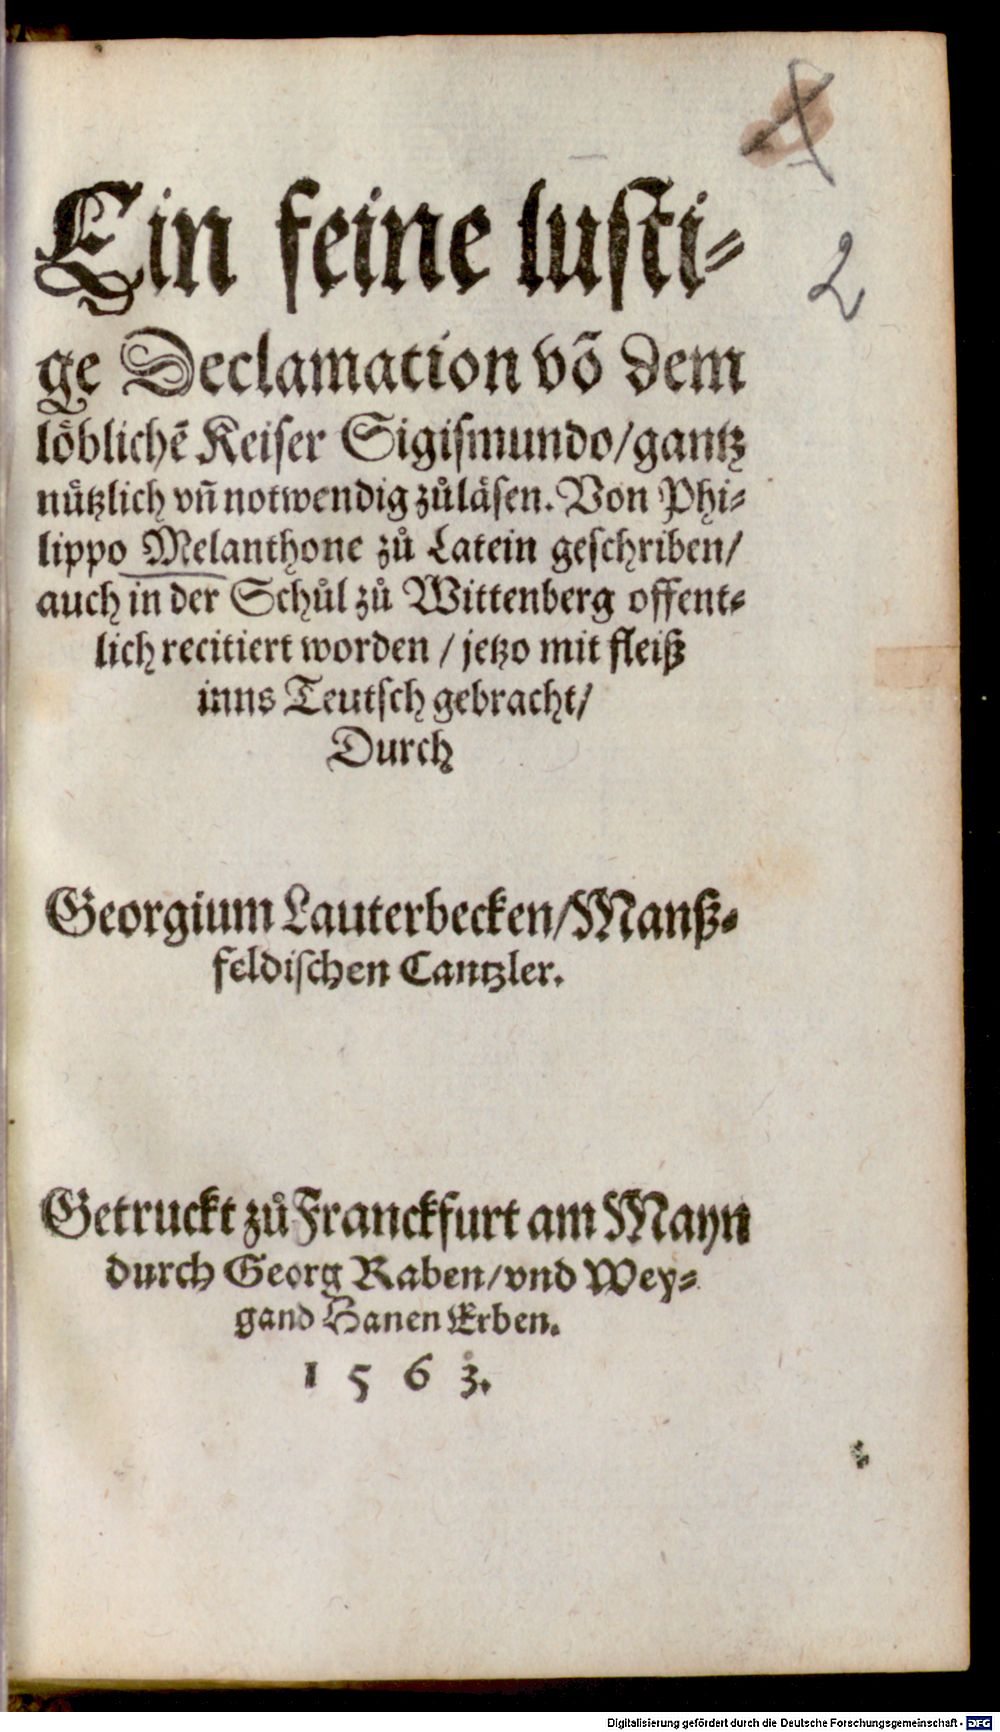 2
Ein feine luſti⸗
ge Declamation võ dem
loͤblichẽ Keiſer Sigiſmundo/gantz
nuͤtzlich vñ notwendig zuͦlaͤſen. Von Phi⸗
lippo Melanthone zuͦ Latein geſchriben/
auch in der Schuͦl zuͦ Wittenberg offent⸗
lich recitiert worden / jetzo mit fleiß
inns Teutſch gebracht/
Durch
Georgium Lauterbecken/Manß⸗
feldiſchen Cantzler.
Getruckt zuͦ Franckfurt am Mayn
durch Georg Raben/vnd Wey⸗
gand Hanen Erben.
1 5 6 3.
Digitalisierung gefördert durch die Deutsche Forschungsgemeinschaft - DFG